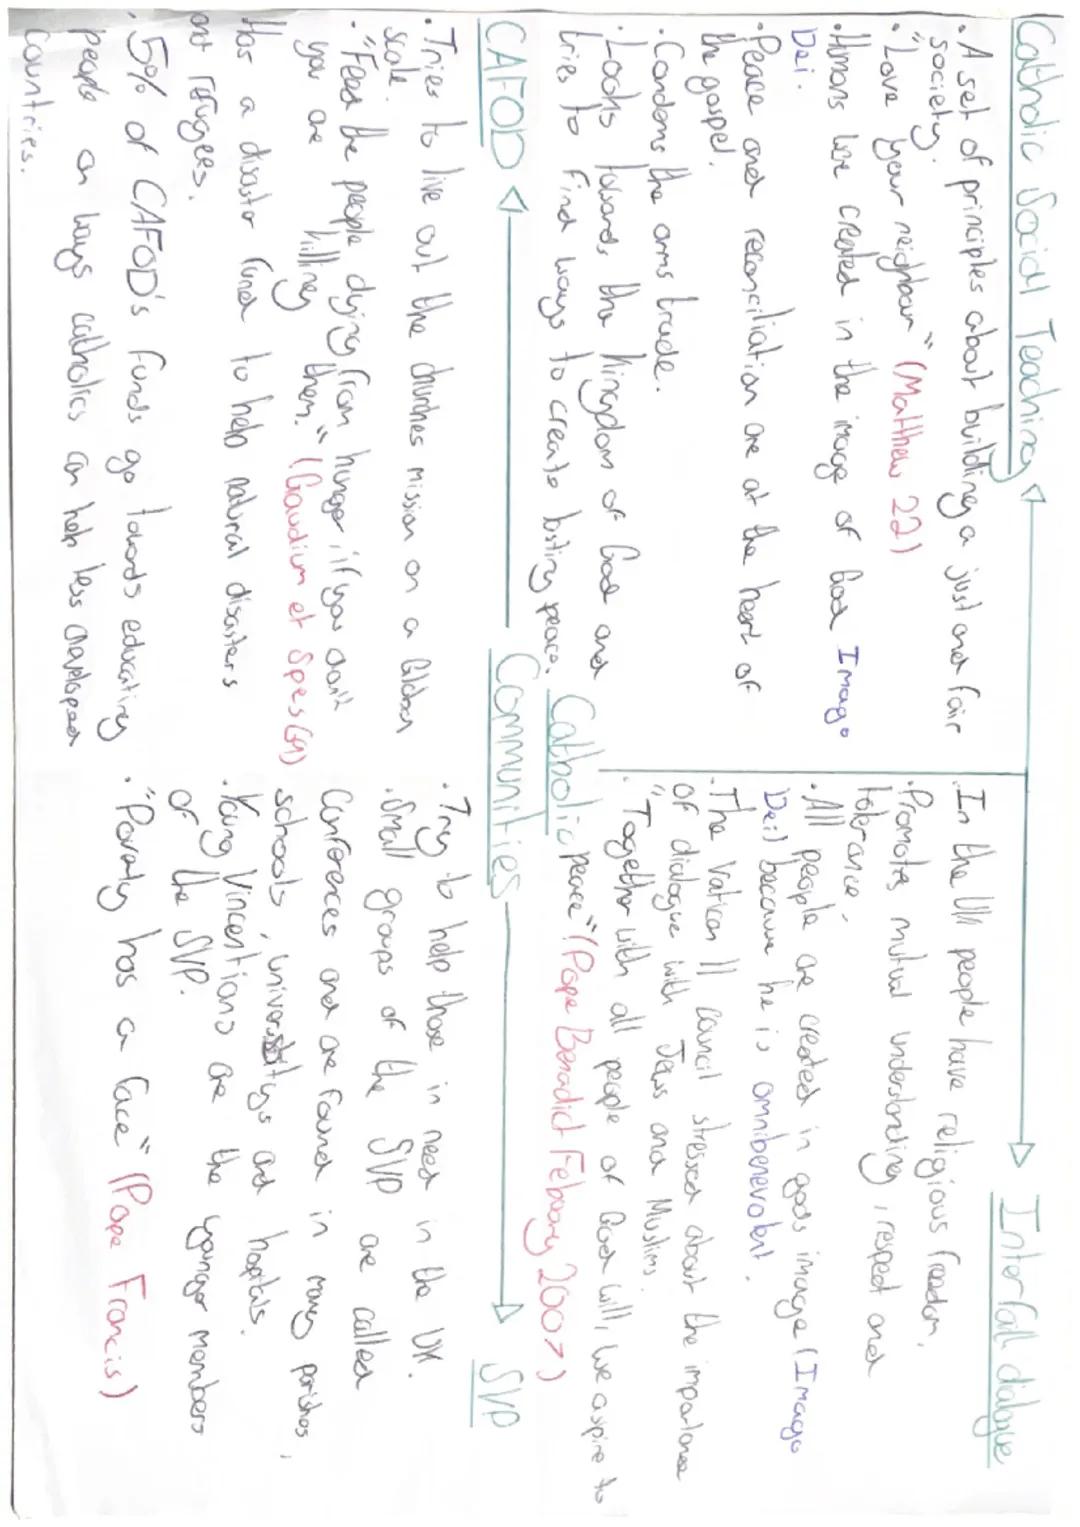 Catholic Social Teaching
• A set of principles about building a just and fair
society.
• "Love your neighbour" (Matthew 22)
• Humans were created in the image of God Imago
Dei.
• Peace and reconciliation are at the heart of
the gospel.
• Condems the arms trade.
• Looks towards the kingdom of God and
tries to find ways to create lasting peace.
Interfaith dialogue
• In the UK people have religious freedom,
• Promotes mutual understanding, respect and
tolerance,
• All people are created in gods image (Imago
Dei) because he is omnibenevolent.
• The Vatican II council stressed about the importance
of dialogue with Jews and Muslims.
• "Together with all people of Good will, we aspire to
peace" (Pope Benadict Febuary 2007)
Catholic
Communities
CAFOD
• Tries to live out the churches mission on a Global
scale.
• "Feed the people dying from hunger if you don't
you are killing them." (Gaudium et Spes 69)
Has a disastor fund to help natural disasters
and refugees.
• 5% of CAFOD's funds go towards educating
people on ways catholics can help less developed
countries.
SVP
• Try to help those in need in the UK.
• Small groups of the SVP are called
Conferences and are found in many parishes,
schools, universitys and hospitals.
• Young Vincentians are the younger members
of the SVP.
• "Poverty has a face" (Pope Francis)